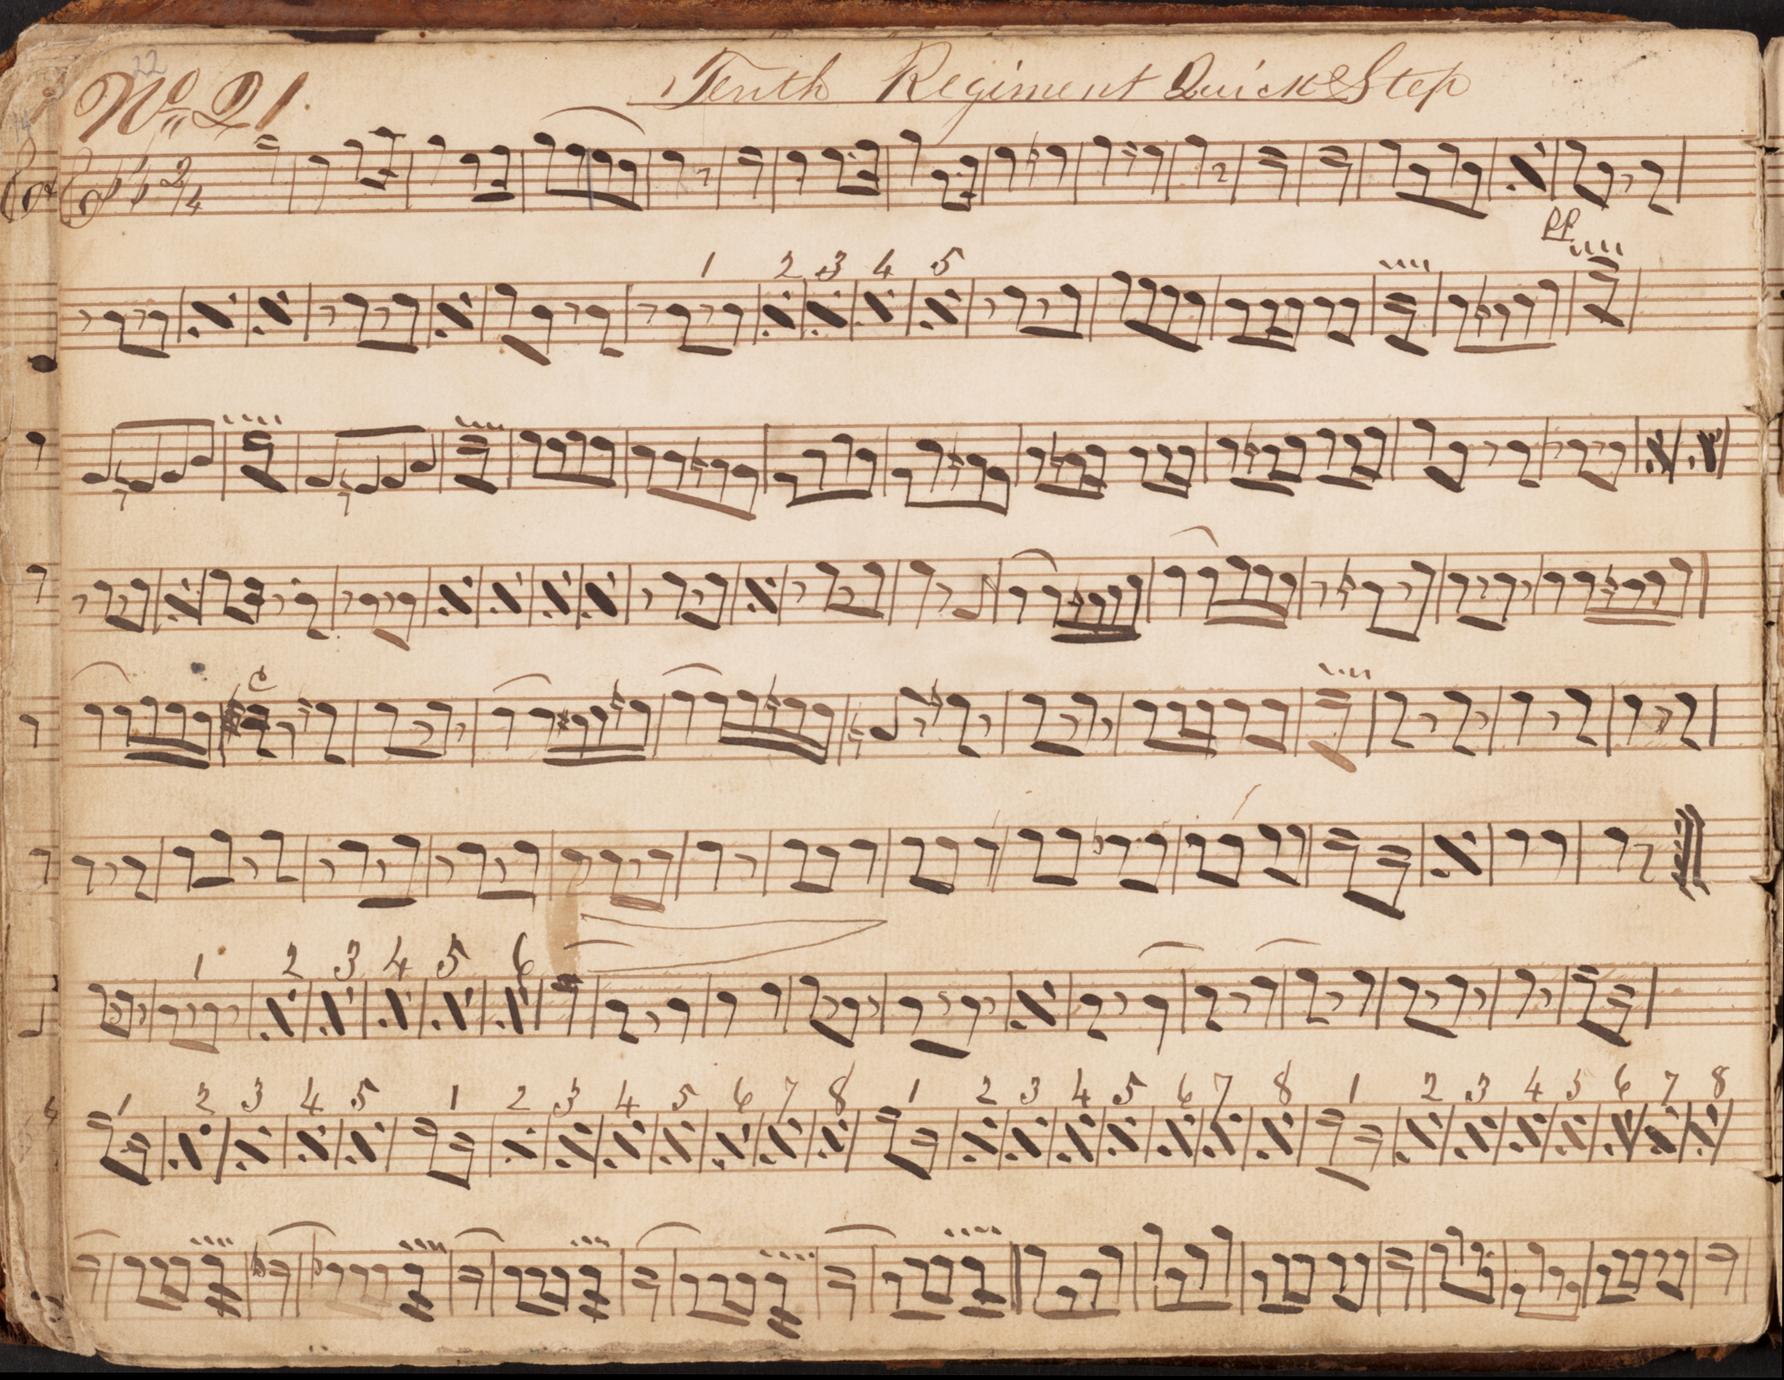 22
No. 21. Tenth Regiment Quick Step
2/4
PP
1 2 3 4 5
1 2 3 4 5 6
1 2 3 4 5 1 2 3 4 5 6 7 8 1 2 3 4 5 6 7 8 1 2 3 4 5 6 7 8